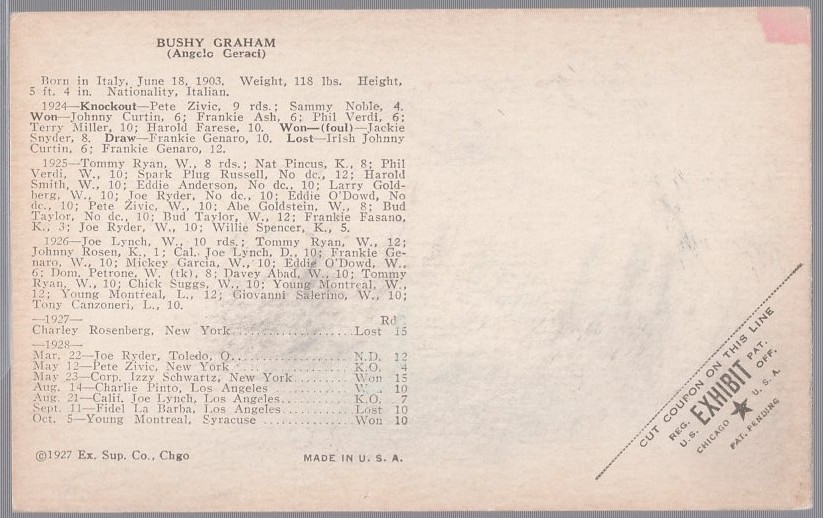 BUSHY GRAHAM
(Angelo Geraci)
Born in Italy, June 18, 1903. Weight, 118 lbs. Height,
5 ft. 4 in. Nationality, Italian.
1924—Knockout—Pete Zivic, 9 rds.; Sammy Noble, 4.
Won—Johnny Curtin, 6; Frankie Ash, 6; Phil Verdi, 6;
Terry Miller, 10; Harold Farese, 10. Won—(foul)—Jackie
Snyder, 8. Draw—Frankie Genaro, 10. Lost—Irish Johnny
Curtin, 6; Frankie Genaro, 12.
1925—Tommy Ryan, W., 8 rds.; Nat Pincus, K., 8; Phil
Verdi, W., 10; Spark Plug Russell, No dc., 12; Harold
Smith, W., 10; Eddie Anderson, No dc., 10; Larry Gold-
berg, W., 10; Joe Ryder, No dc., 10; Eddie O'Dowd, No
dc., 10; Pete Zivic, W., 10; Abe Goldstein, W., 8; Bud
Taylor, No dc., 10; Bud Taylor, W., 12; Frankie Fasano,
K., 3; Joe Ryder, W., 10; Willie Spencer, K., 5.
1926—Joe Lynch, W., 10 rds.; Tommy Ryan, W., 12;
Johnny Rosen, K., 1; Cal. Joe Lynch, D., 10; Frankie Ge-
naro, W., 10; Mickey Garcia, W., 10; Eddie O'Dowd, W.,
6; Dom. Petrone, W. (tk), 8; Davey Abad, W., 10; Tommy
Ryan, W., 10; Chick Suggs, W., 10; Young Montreal, W.,
12; Young Montreal, L., 12; Giovanni Salerino, W., 10;
Tony Canzoneri, L., 10.
—1927— Rd
Charley Rosenberg, New York....................Lost 15
—1928—
Mar. 22—Joe Ryder, Toledo, O....................N.D. 12
May 12—Pete Zivic, New York....................K.O. 4
May 23—Corp. Izzy Schwartz, New York.........Won 15
Aug. 14—Charlie Pinto, Los Angeles..............W 10
Aug. 21—Calif. Joe Lynch, Los Angeles...........K.O. 7
Sept. 11—Fidel La Barba, Los Angeles...........Lost 10
Oct. 5—Young Montreal, Syracuse...............Won 10
©1927 Ex. Sup. Co., Chgo
MADE IN U. S. A.
CUT COUPON ON THIS LINE
REG. U.S. EXHIBIT PAT. OFF.
CHICAGO ★ U. S. A.
PAT. PENDING